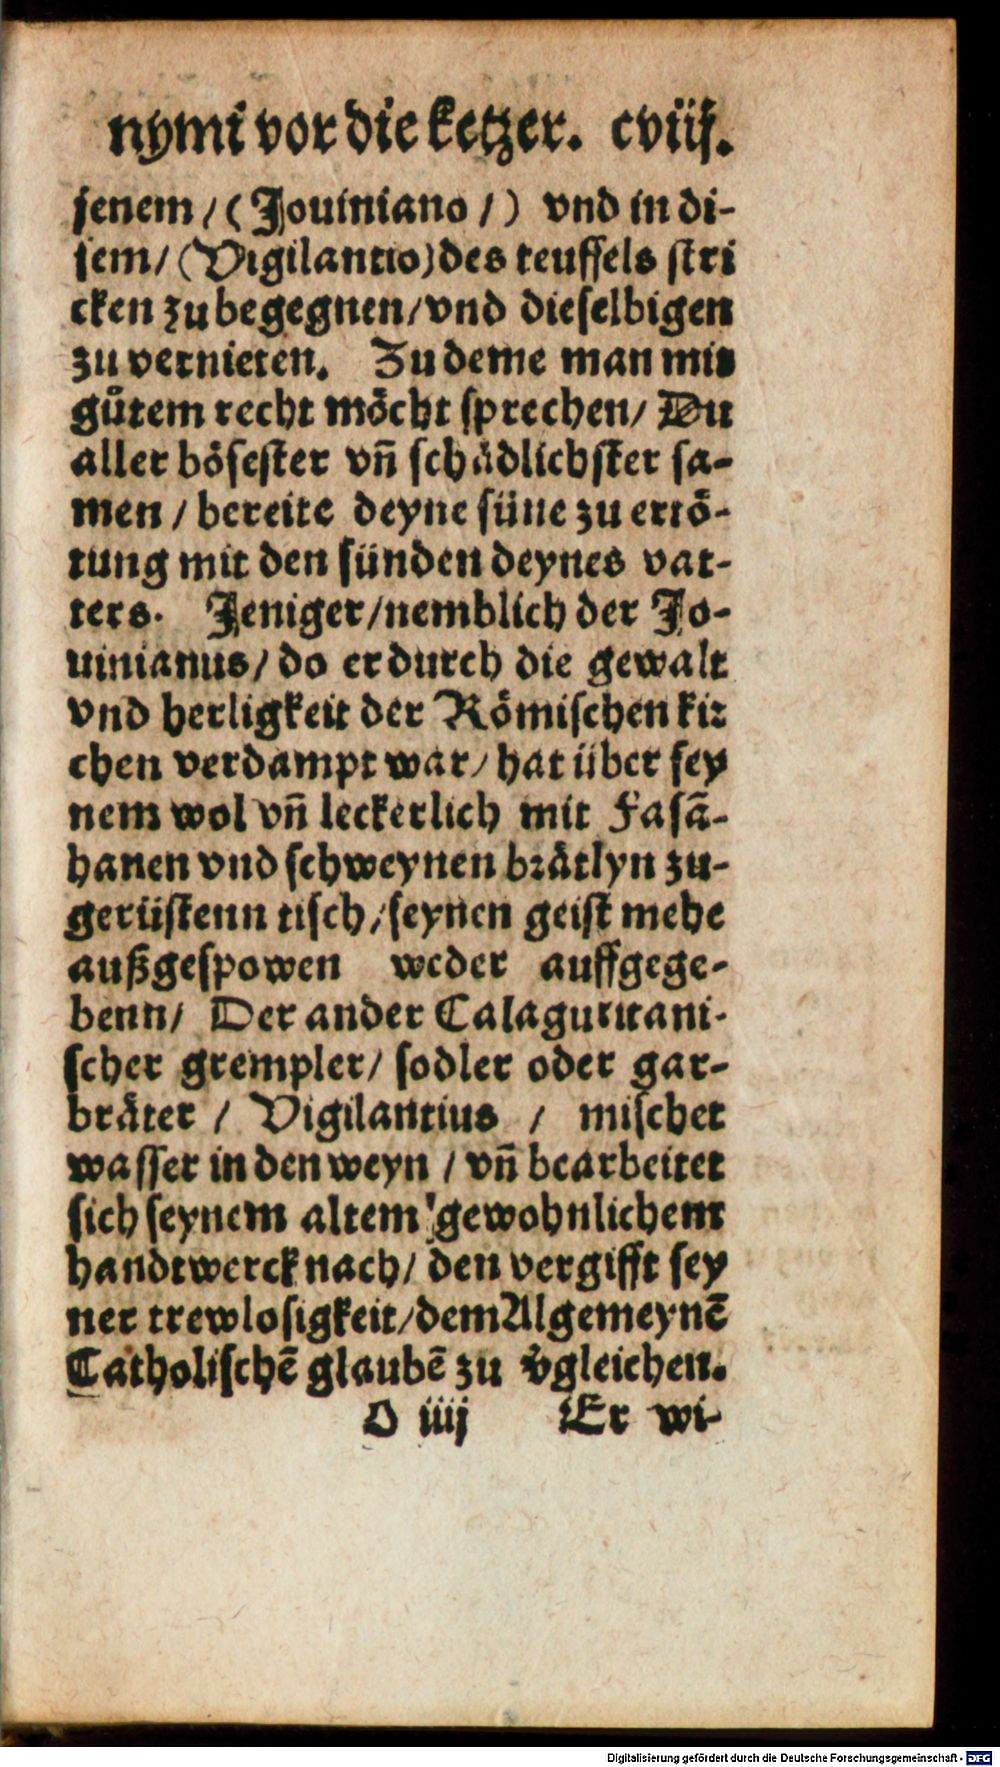 nymi vor die ketzer. cviij.
jenem / (Jouiniano /) vnd in di-
sem / (Vigilantio) des teuffels stri
cken zu begegnen / vnd dieselbigen
zu vernieten. Zu deme man mit
gůtem recht möcht sprechen / Du
aller bösester vñ schädlichster sa-
men / bereite deyne süne zu ertö-
tung mit den sünden deynes vat-
ters. Jeniger / nemblich der Jo-
uinianus / do er durch die gewalt
vnd herligkeit der Römischen kir
chen verdampt war / hat über sey
nem wol vñ leckerlich mit Fasã-
hanen vnd schweynen brätlyn zu-
gerüstenn tisch / seynen geist mehe
außgespowen weder auffgege-
benn / Der ander Calaguritani-
scher grempler / sodler oder gar-
bräter / Vigilantius / mischet
wasser in den weyn / vñ bearbeitet
sich seynem altem gewohnlichem
handtwerck nach / den vergifft sey
ner trewlosigkeit / dem Algemeynē
Catholischē glaubē zu vgleichen.
O iiij Er wi-
Digitalisierung gefördert durch die Deutsche Forschungsgemeinschaft - DFG